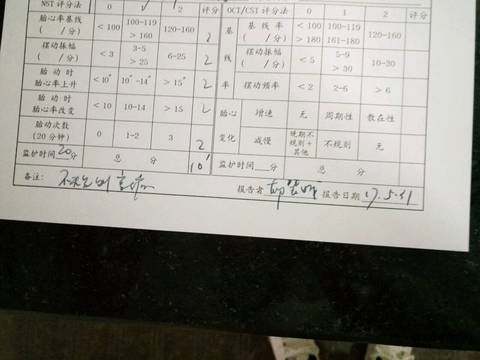 NST评分法 0 1 2 评分 OCT/CST评分法 0 1 2 评分
胎心率基线 ( /分) <100 100-119 >160 120-160 2 基线率 ( /分) <100 >180 100-119 161-180 120-160
摆动振幅 ( /分) <3 3-5 >25 6-25 2 摆动振幅 ( /分) <5 5-9 >30 10-30
胎动时 胎心率上升 <10" 10"-14" >15" 2 摆动频率 <2 2-6 >6
胎动时 胎心率改变 <10 10-14 >15 2 胎心 增速 无 周期性 散在性
胎动次数 (20分钟) 0 1-2 3 2 变化 减慢 晚期不规则+其他 不规则 无
监护时间20分 总 分 10' 监护时间 分 总 分
备注: 报告者 报告日期 17.5.21